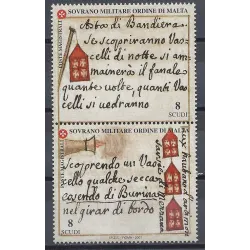 SOVRANO MILITARE ORDINE DI MALTA
POSTE MAGISTRALI
Astas di Bandiera
Se scopriranno Vas
celli di notte si am
mainerà il fanale
quante volte, quanti Vas
celli si vedranno
8
SCUDI
SOVRANO MILITARE ORDINE DI MALTA
POSTE MAGISTRALI
scoprendo un Vas
cello qualche secca
cosendo di Burina
nel girar di bordo
8
SCUDI